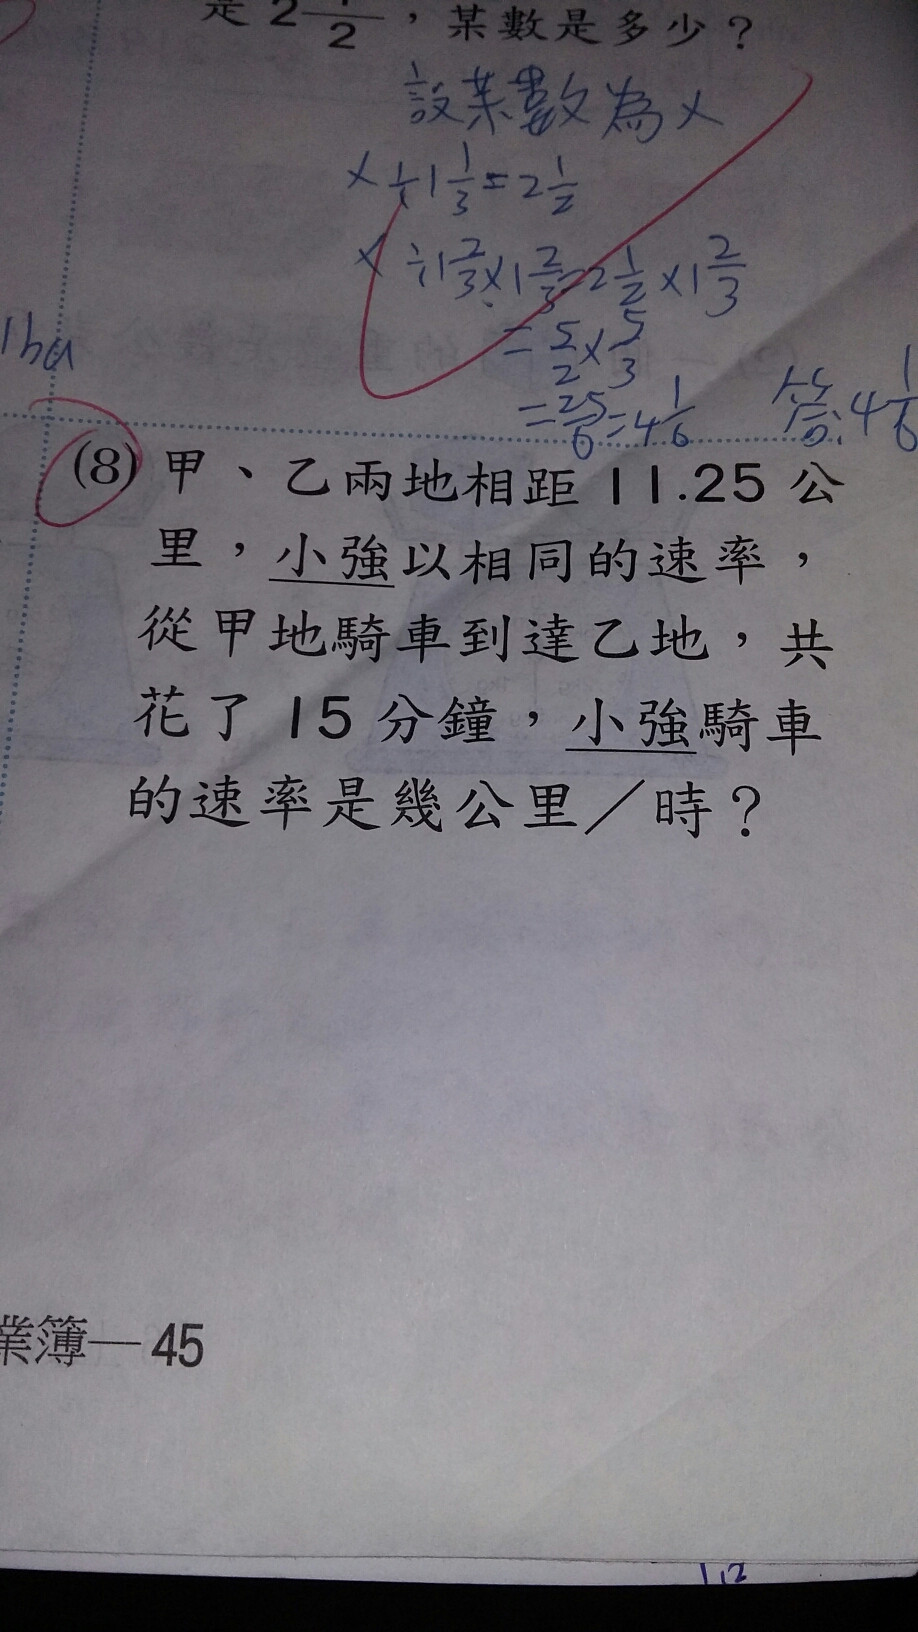 是2 1/2，某數是多少？
設某數為x
x÷1 1/3=2 1/2
x÷1 2/3×1 2/3=2 1/2×1 2/3
=5/2×5/3
=25/6=4 1/6 答:4 1/6
(8)甲、乙兩地相距11.25公
里，小強以相同的速率，
從甲地騎車到達乙地，共
花了15分鐘，小強騎車
的速率是幾公里／時？
業簿—45